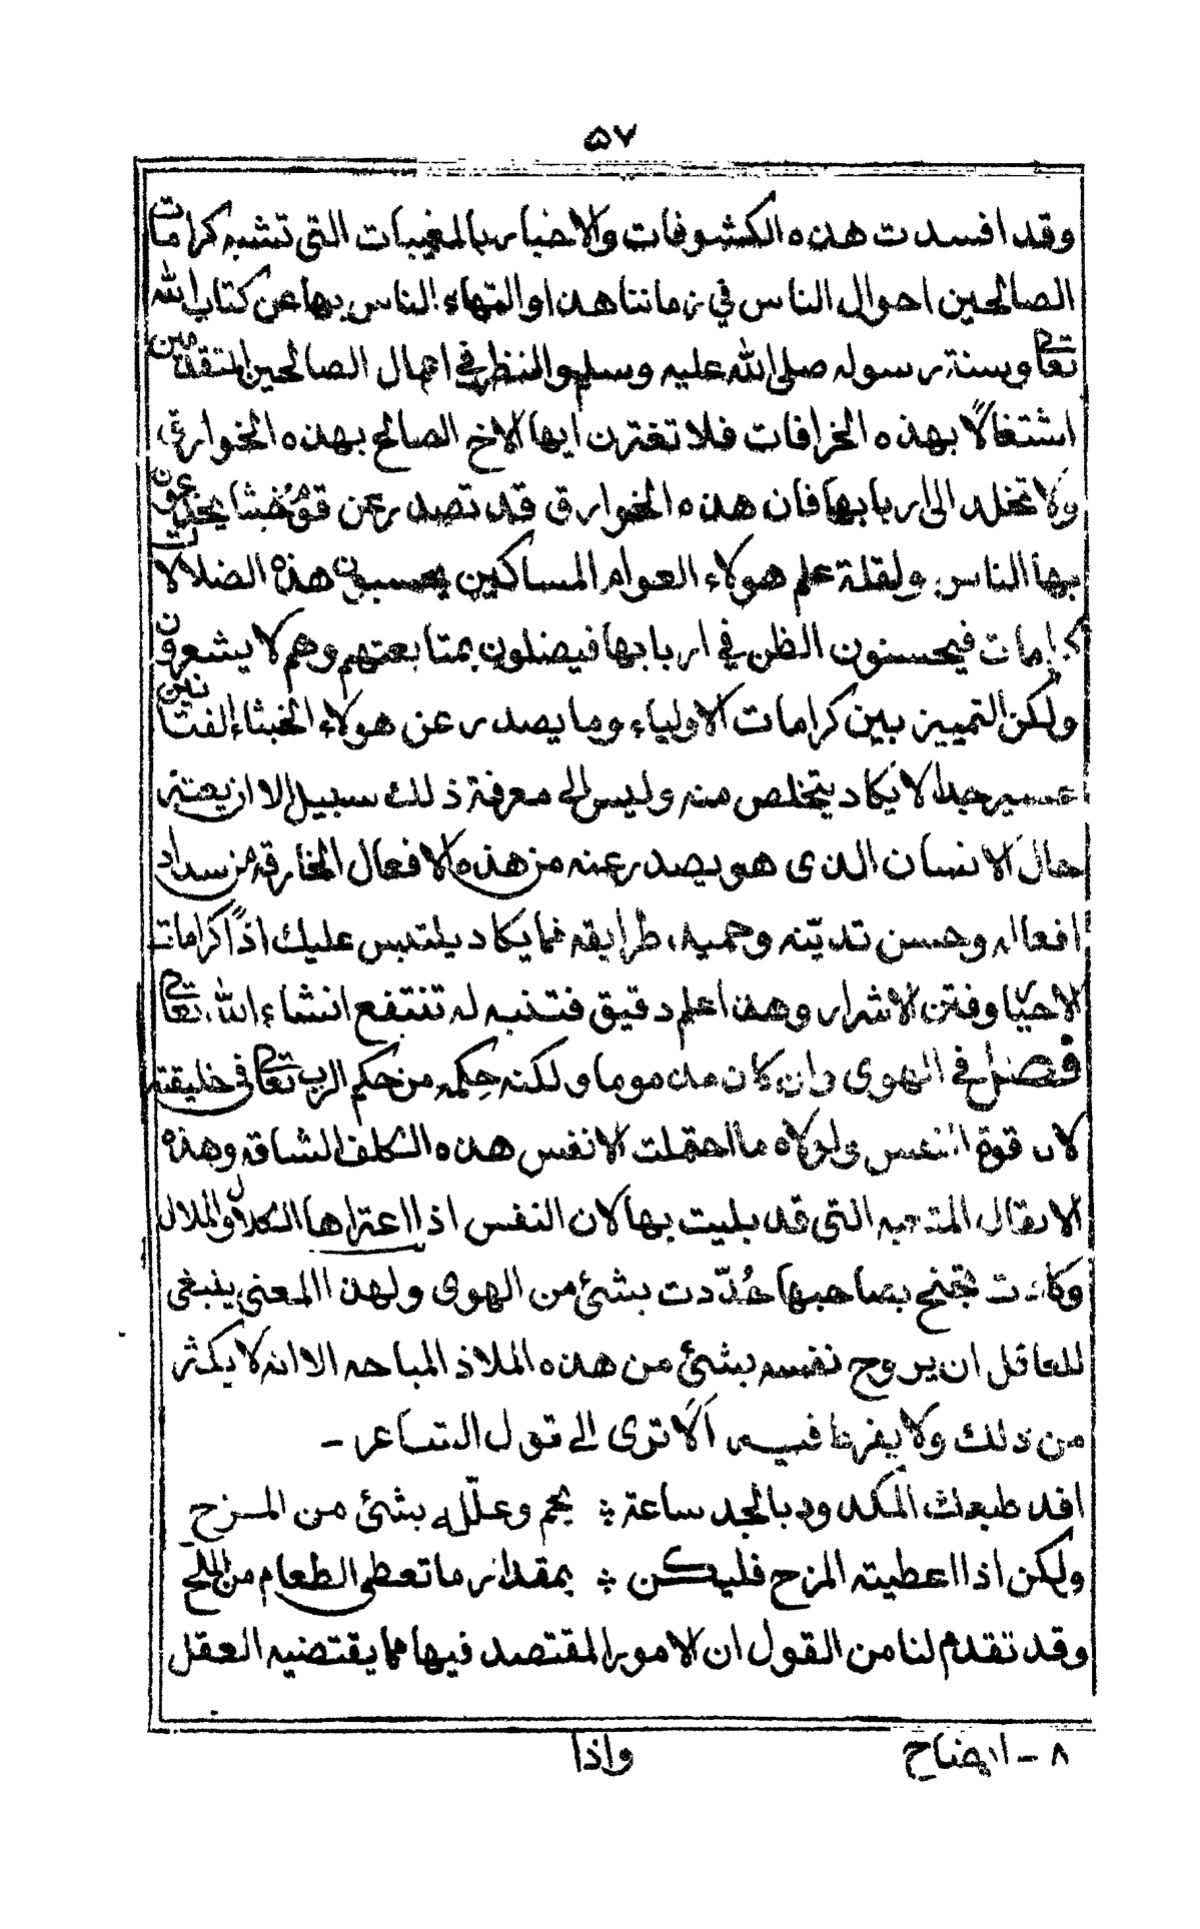 ٥٧
وقد افسدت هذه الكشوفات والاخبار بالمغيبات التى تشبه كرامات
الصالحين احوال الناس في زماننا هذا والتهاء الناس بها عن كتاب الله
تعالى وسنة رسوله صلى الله عليه وسلم والنظر في اعمال الصالحين المتقدمين
اشتغالًا بهذه الخرافات فلا تغترن ايها الاخ الصالح بهذه الخوارق
ولا تخلد الى اربابها فان هذه الخوارق قد تصدر عن قوم خبثا يخدعون
بها الناس ولقلة علم هولاء العوام المساكين يحسبون هذه الضلالات
كرامات فيحسنون الظن في اربابها فيضلون بمتابعتهم وهم لا يشعرون
ولكن التمييز بين كرامات الاولياء وما يصدر عن هولاء الخبثاء الفتانين
عسير جدا لا يكاد يتخلص منه وليس الى معرفة ذلك سبيل الا ان
حال الانسان الذى هو يصدر عنه من هذه الافعال الخارقة من سداد
افعاله وحسن تدينه وحميد طرايقه فما يكاد يلتبس عليك اذاً كرامات
الاحيا وفتن الاشرار وهذا علم دقيق فتنبه له تنتفع انشاء الله تعالى
فصل في الهوى وان كان مذموما ولكنه حِكمه من حكم الرب تعالى فى خليقته
لان قوة النفس ولولاه ما احتملت الانفس هذه الكلف الشاقه وهذه
الاثقال المتعبه التى قد بليت بها لان النفس اذا اعتراها الكلال والملال
وكادت تجنح بصاحبها حُدّدت بشئ من الهوى ولهذا المعنى ينبغى
للعاقل ان يروح نفسه بشئ من هذه الملاذ المباحه الا انه لا يكثر
من ذلك ولا يفرط فيه الا ترى الى قول الشاعر ـ
افد طبعك المكدود بالجد ساعة ؞ يجم وعلّله بشئ من المزح
ولكن اذا اعطيته المزح فليكن ؞ بمقدار ما تعطى الطعام من الملح
وقد تقدم لنا من القول ان الامور المقتصد فيها مما يقتضيه العقل
واذا
٨ ـ ايضاح